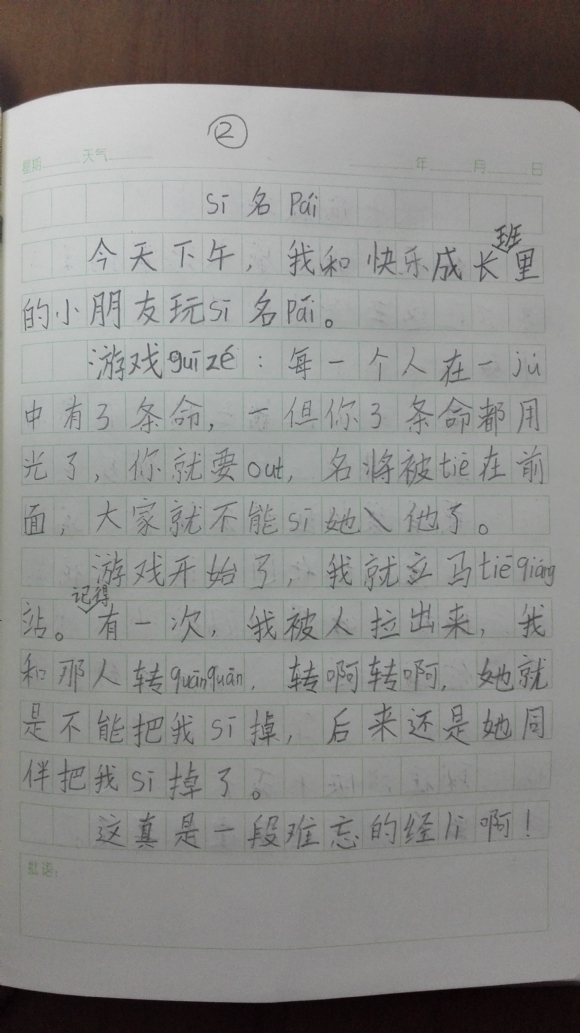 ②
星期 天气 年 月 日
sī 名 Pái
今天下午，我和快乐成长班里
的小朋友玩sī名Pái。
游戏guīzé：每一个人在一jú
中有3条命，一但你3条命都用
光了，你就要out，名将被tiē在前
面，大家就不能sī她\他了。
游戏开始了，我就立马tiēqiáng
站。记得有一次，我被人拉出来，我
和那人转quānquān，转啊转啊，她就
是不能把我sī掉，后来还是她同
伴把我sī掉了。
这真是一段难忘的经lì啊！
批语：